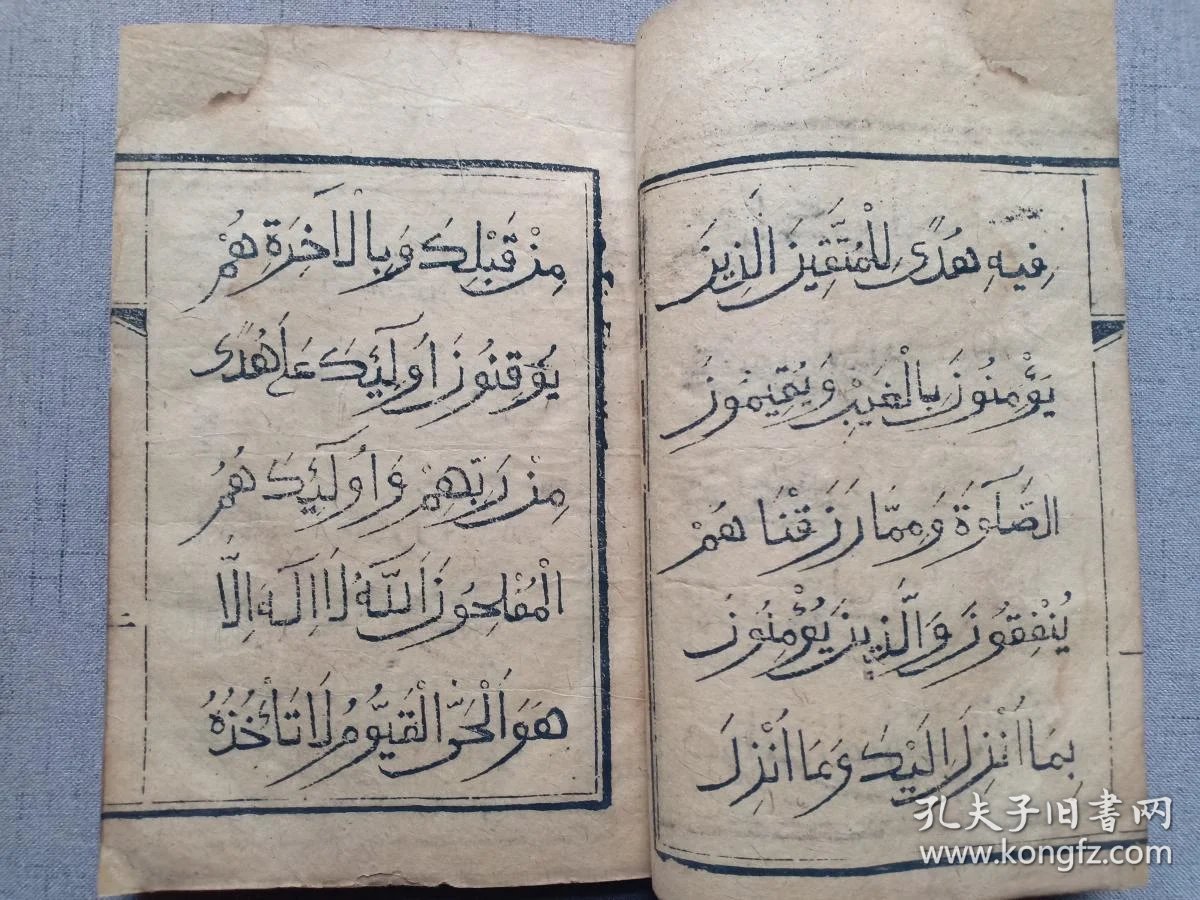 فِيهِ هُدًى لِلْمُتَّقِينَ الَّذِينَ
يُؤْمِنُونَ بِالْغَيْبِ وَيُقِيمُونَ
الصَّلَوةَ وَمِمَّا رَزَقْنَا هُمْ
يُنْفِقُونَ وَالَّذِينَ يُؤْمِنُونَ
بِمَا اُنْزِلَ اِلَيْكَ وَمَا اُنْزِلَ
مِنْ قَبْلِكَ وَبِالْاَخِرَةِ هُمْ
يُوقِنُونَ اُولَئِكَ عَلَى هُدًى
مِنْ رَبِّهِمْ وَاُولَئِكَ هُمُ
الْمُفْلِحُونَ اَللَّهُ لَا اِلَهَ اِلَّا
هُوَ الْحَيُّ الْقَيُّومُ لَا تَأْخُذُهُ
二
孔夫子旧書网
www.kongfz.com